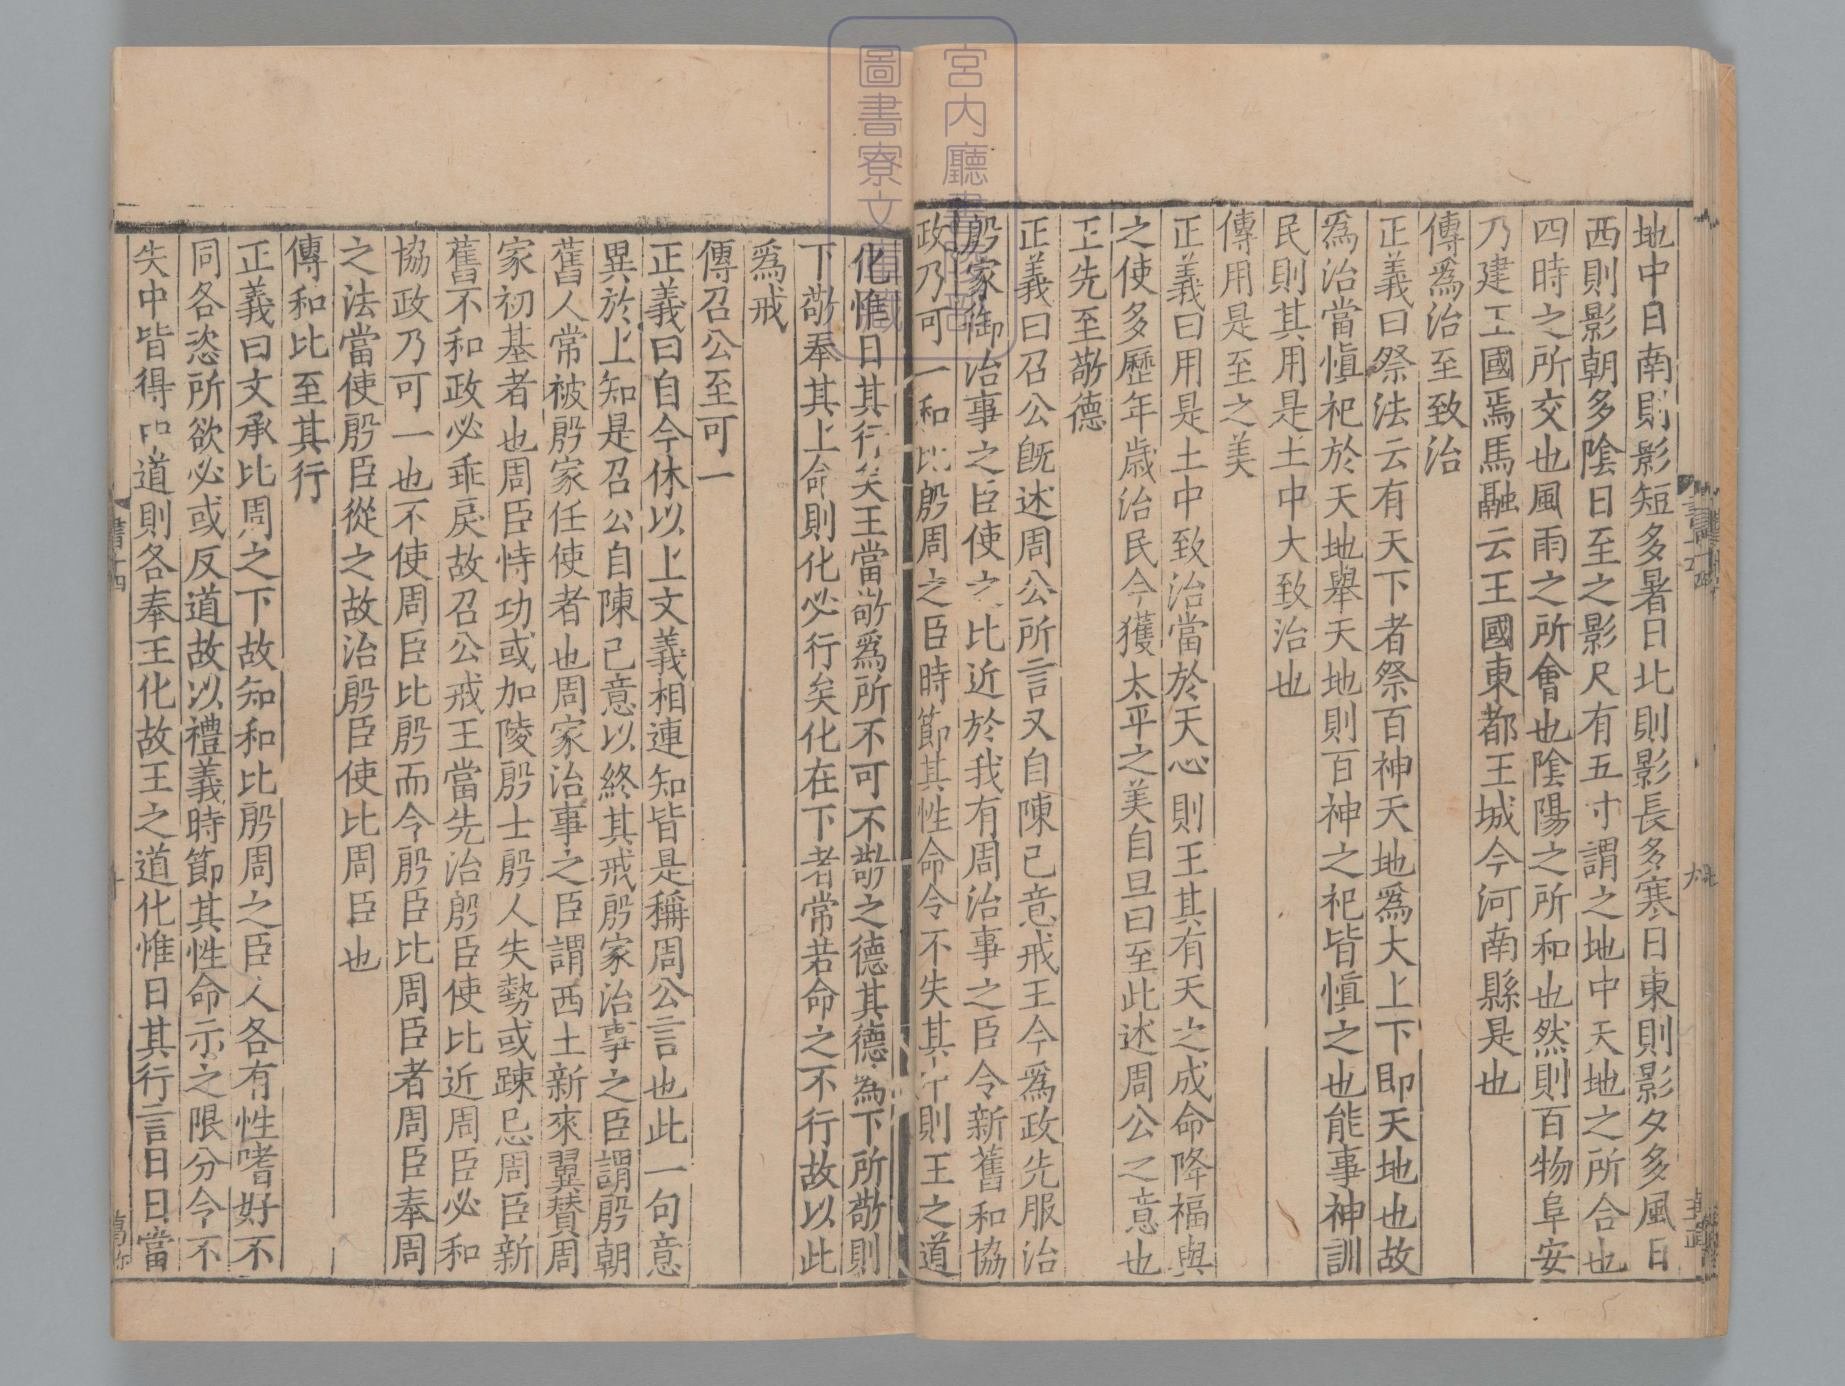 地中日南則影短多暑日北則影長多寒日東則影夕多風日
西則影朝多陰日至之影尺有五寸謂之地中天地之所合也
四時之所交也風雨之所會也陰陽之所和也然則百物阜安
乃建王國焉馬融云王國東都王城今河南縣是也
傳爲治至致治
正義曰祭法云有天下者祭百神天地爲大上下即天地也故
爲治當愼祀於天地舉天地則百神之祀皆愼之也能事神訓
民則其用是土中大致治也
傳用是至之美
正義曰用是土中致治當於天心則王其有天之成命降福與
之使多歷年歲治民今獲太平之美自旦曰至此述周公之意也
王先至敬德
正義曰召公旣述周公所言又自陳已意戒王今爲政先服治
殷家御治事之臣使之比近於我有周治事之臣令新舊和協
政乃可一和比殷周之臣時節其性命令不失其中則王之道
化惟日其行矣王當敬爲所不可不敬之德其德爲下所敬則
下敬奉其上命則化必行矣化在下者常若命之不行故以此
爲戒
傳召公至可一
正義曰自今休以上文義相連知皆是稱周公言也此一句意
異於上知是召公自陳已意以終其戒殷家治事之臣謂殷朝
舊人常被殷家任使者也周家治事之臣謂西土新來翼贊周
家初基者也周臣恃功或加陵殷士殷人失勢或踈忌周臣新
舊不和政必乖戾故召公戒王當先治殷臣使比近周臣必和
協政乃可一也不使周臣比殷而令殷臣比周臣者周臣奉周
之法當使殷臣從之故治殷臣使比周臣也
傳和比至其行
正義曰文承比周之下故知和比殷周之臣人各有性嗜好不
同各恣所欲必或反道故以禮義時節其性命示之限分令不
失中皆得中道則各奉王化故王之道化惟日其行言日日當
書十四
宮内廳書陵部
圖書寮文庫藏